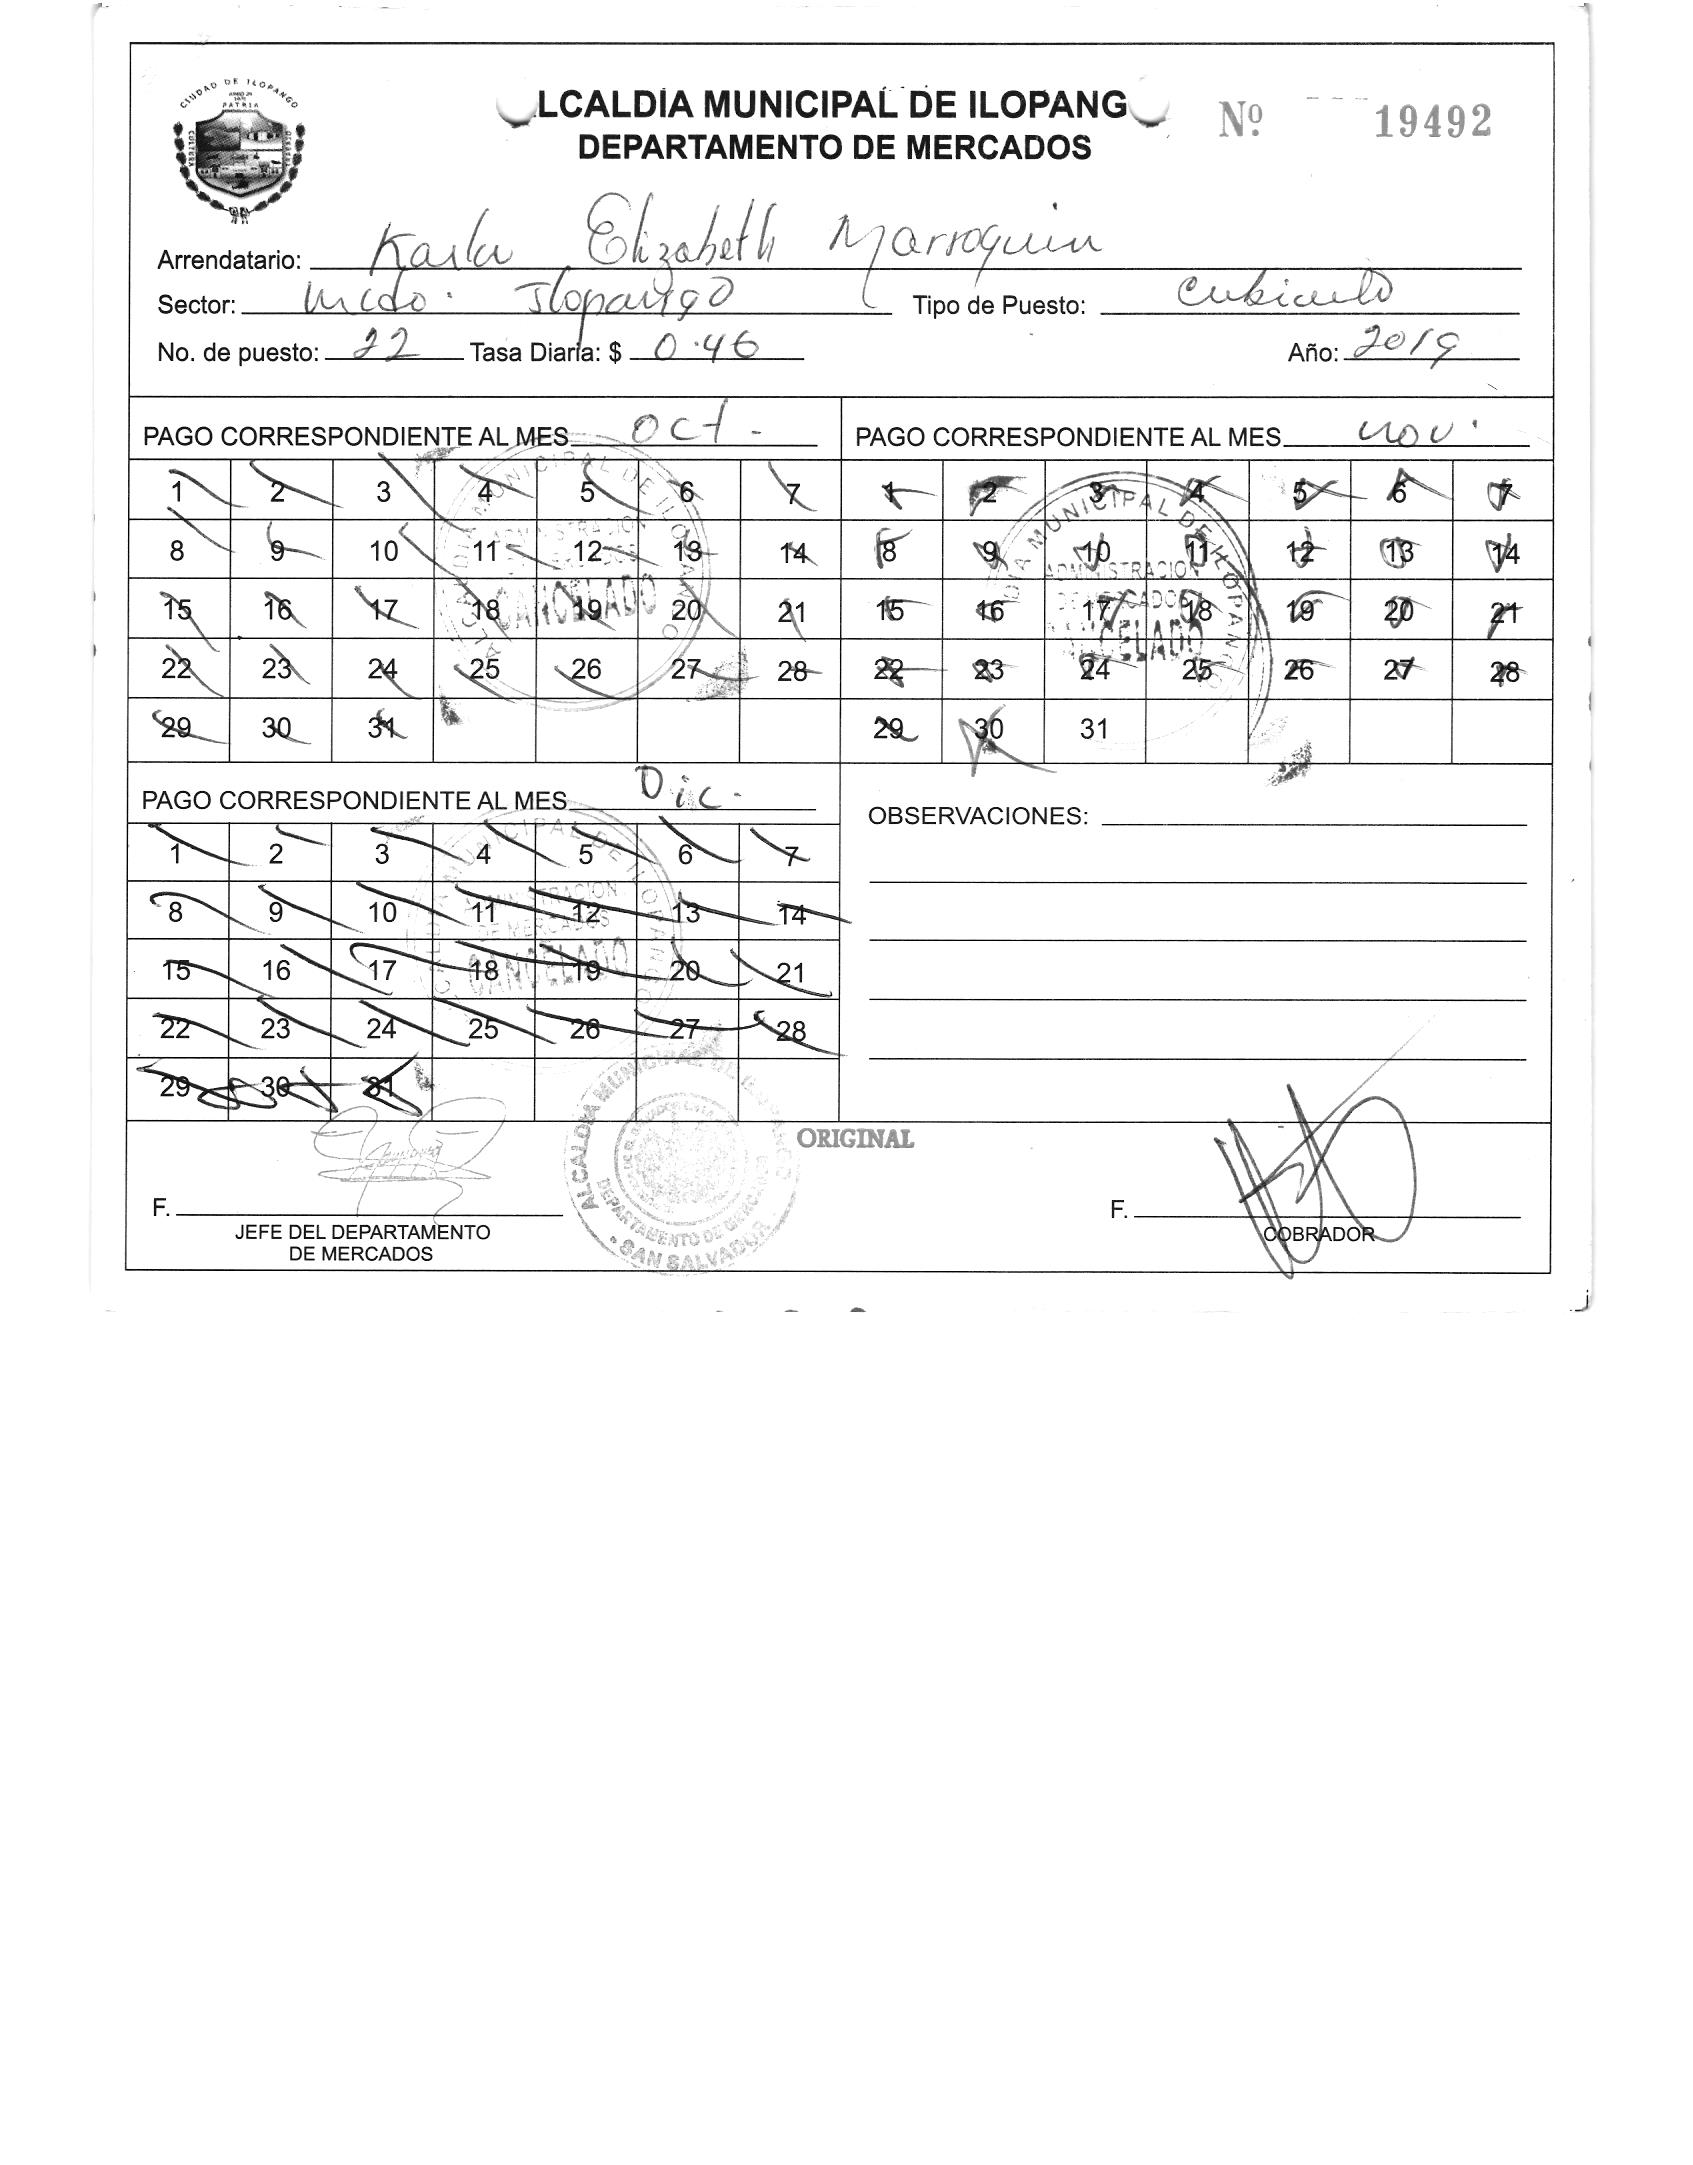 CIUDAD DE ILOPANGO
PATRIA
CULTURA
LCALDIA MUNICIPAL DE ILOPANG
Nº 19492
DEPARTAMENTO DE MERCADOS
Arrendatario: Karla Elizabeth Marroquin
Sector: Mcdo. Ilopango Tipo de Puesto: Cubiculo
No. de puesto: 22 Tasa Diaria: $ 0.46 Año: 2019
PAGO CORRESPONDIENTE AL MES Oct.
1 2 3 4 5 6 7
8 9 10 11 12 13 14
15 16 17 18 19 20 21
22 23 24 25 26 27 28
29 30 31
ALCALDIA MUNICIPAL DE ILOPANGO
ADMINISTRACION
CANCELADO
PAGO CORRESPONDIENTE AL MES nov.
1 2 3 4 5 6 7
8 9 10 11 12 13 14
15 16 17 18 19 20 21
22 23 24 25 26 27 28
29 30 31
DIA MUNICIPAL DE ILOPANGO
ADMINISTRACION
DE MERCADOS
CANCELADO
PAGO CORRESPONDIENTE AL MES Dic.
1 2 3 4 5 6 7
8 9 10 11 12 13 14
15 16 17 18 19 20 21
22 23 24 25 26 27 28
29 30 31
MUNICIPAL DE ILOPANGO
ADMINISTRACION
DE MERCADOS
CANCELADO
OBSERVACIONES:
ORIGINAL
ALCALDIA MUNICIPAL DE ILOPANGO
DEPARTAMENTO DE MERCADOS
SAN SALVADOR
F.
JEFE DEL DEPARTAMENTO
DE MERCADOS
F.
COBRADOR